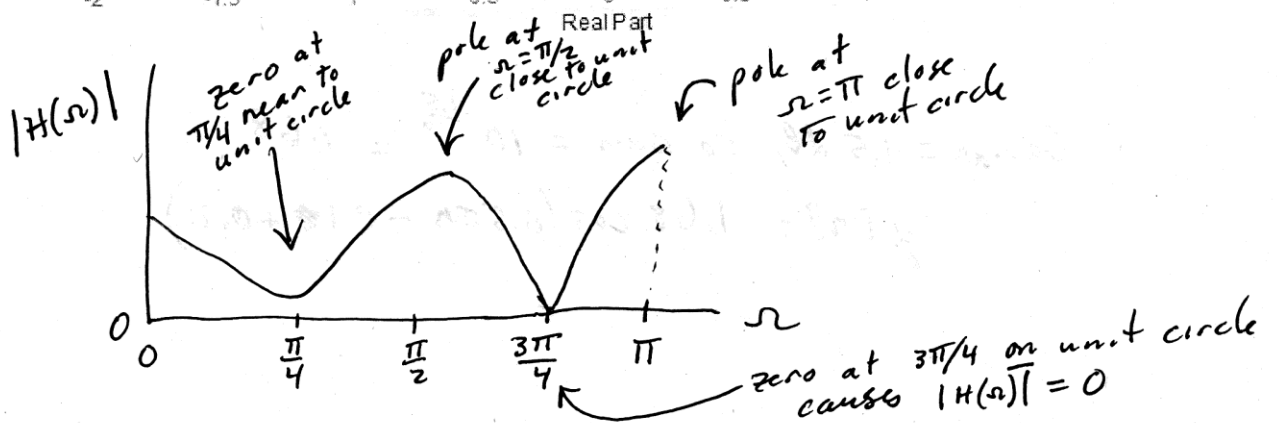 -2
-1.5
Real Part
|H(Ω)|
zero at
π/4 near to
unit circle
pole at
Ω=π/2
close to unit
circle
pole at
Ω=π close
to unit circle
0
0
π/4
π/2
3π/4
π
Ω
zero at 3π/4 on unit circle
causes |H(Ω)| = 0